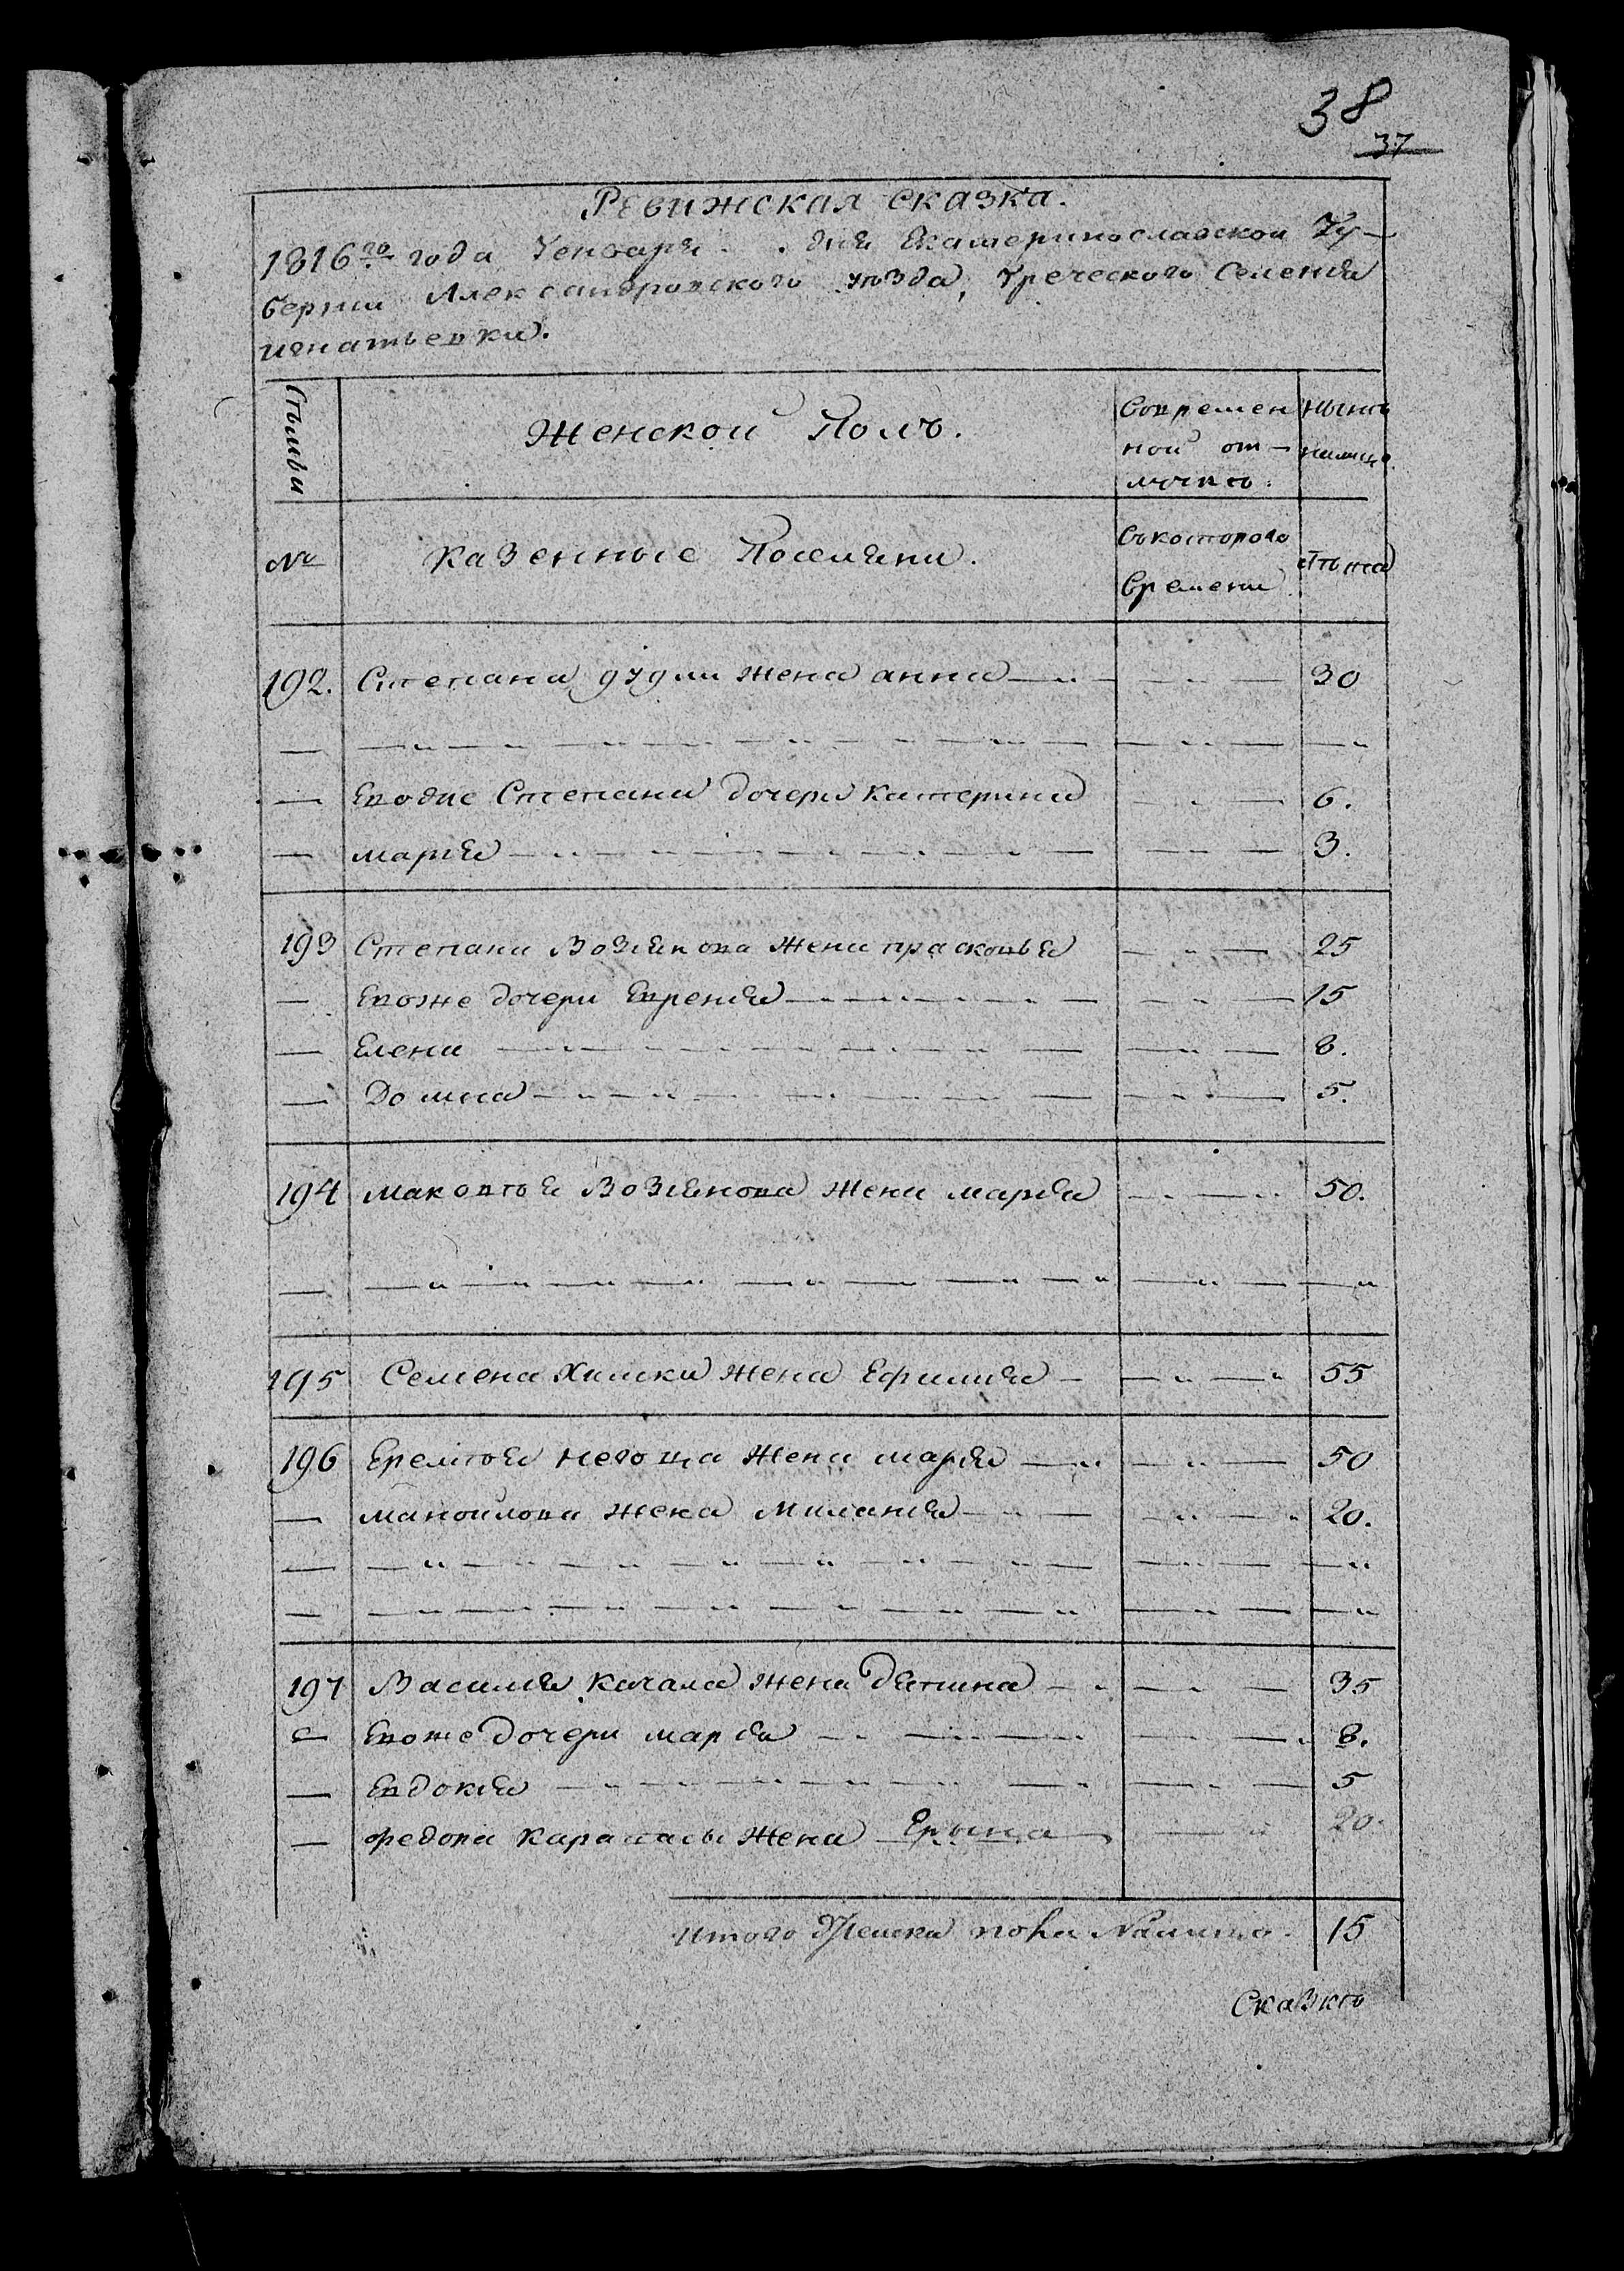 38
37
Ревижская сказка.
1816го года Генваря . . дня Екатеринославской Гу-
бернии Александровского уѣзда, Греческого Селения
игнатьевки.
Статьи
Женской Полъ.
Вовремен
ной от-
лучкѣ.
нынѣ
налицо
№
Казенные Поселяни.
Съкоторого
времени
лѣта
192. Степана дудли жена анна 30
Еводне Степана дочери катерина 6.
мария 3.
193 Степана Возиянова жена прасковья 25
Евоже дочери Еврения 15
Елена 8.
Домна 5.
194 маковѣя Возиянова жена мария 50.
195 Семена Химки жена Ефимия 55
196 Еремѣя негоца жена мария 50
манойлова жена Милания 20.
197 Василия Качала жена дитина 35
Евоже дочери мария 8.
Евдокия 5
федора карапасы жена Ерына 20.
итого женска пола Налицо. 15
Сказкѣ